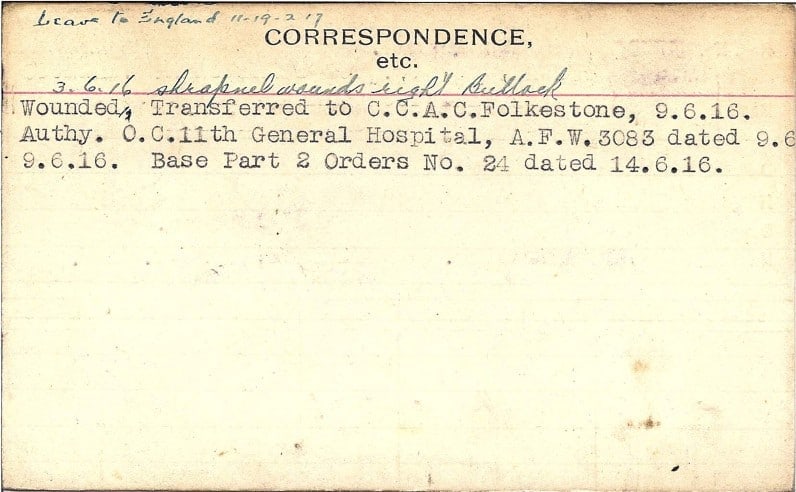 Leave to England 11-19-2-17
CORRESPONDENCE,
etc.
3.6.16 shrapnel wounds right Buttock
Wounded, Transferred to C.C.A.C.Folkestone, 9.6.16.
Authy. O.C.11th General Hospital, A.F.W.3083 dated 9.6
9.6.16. Base Part 2 Orders No. 24 dated 14.6.16.